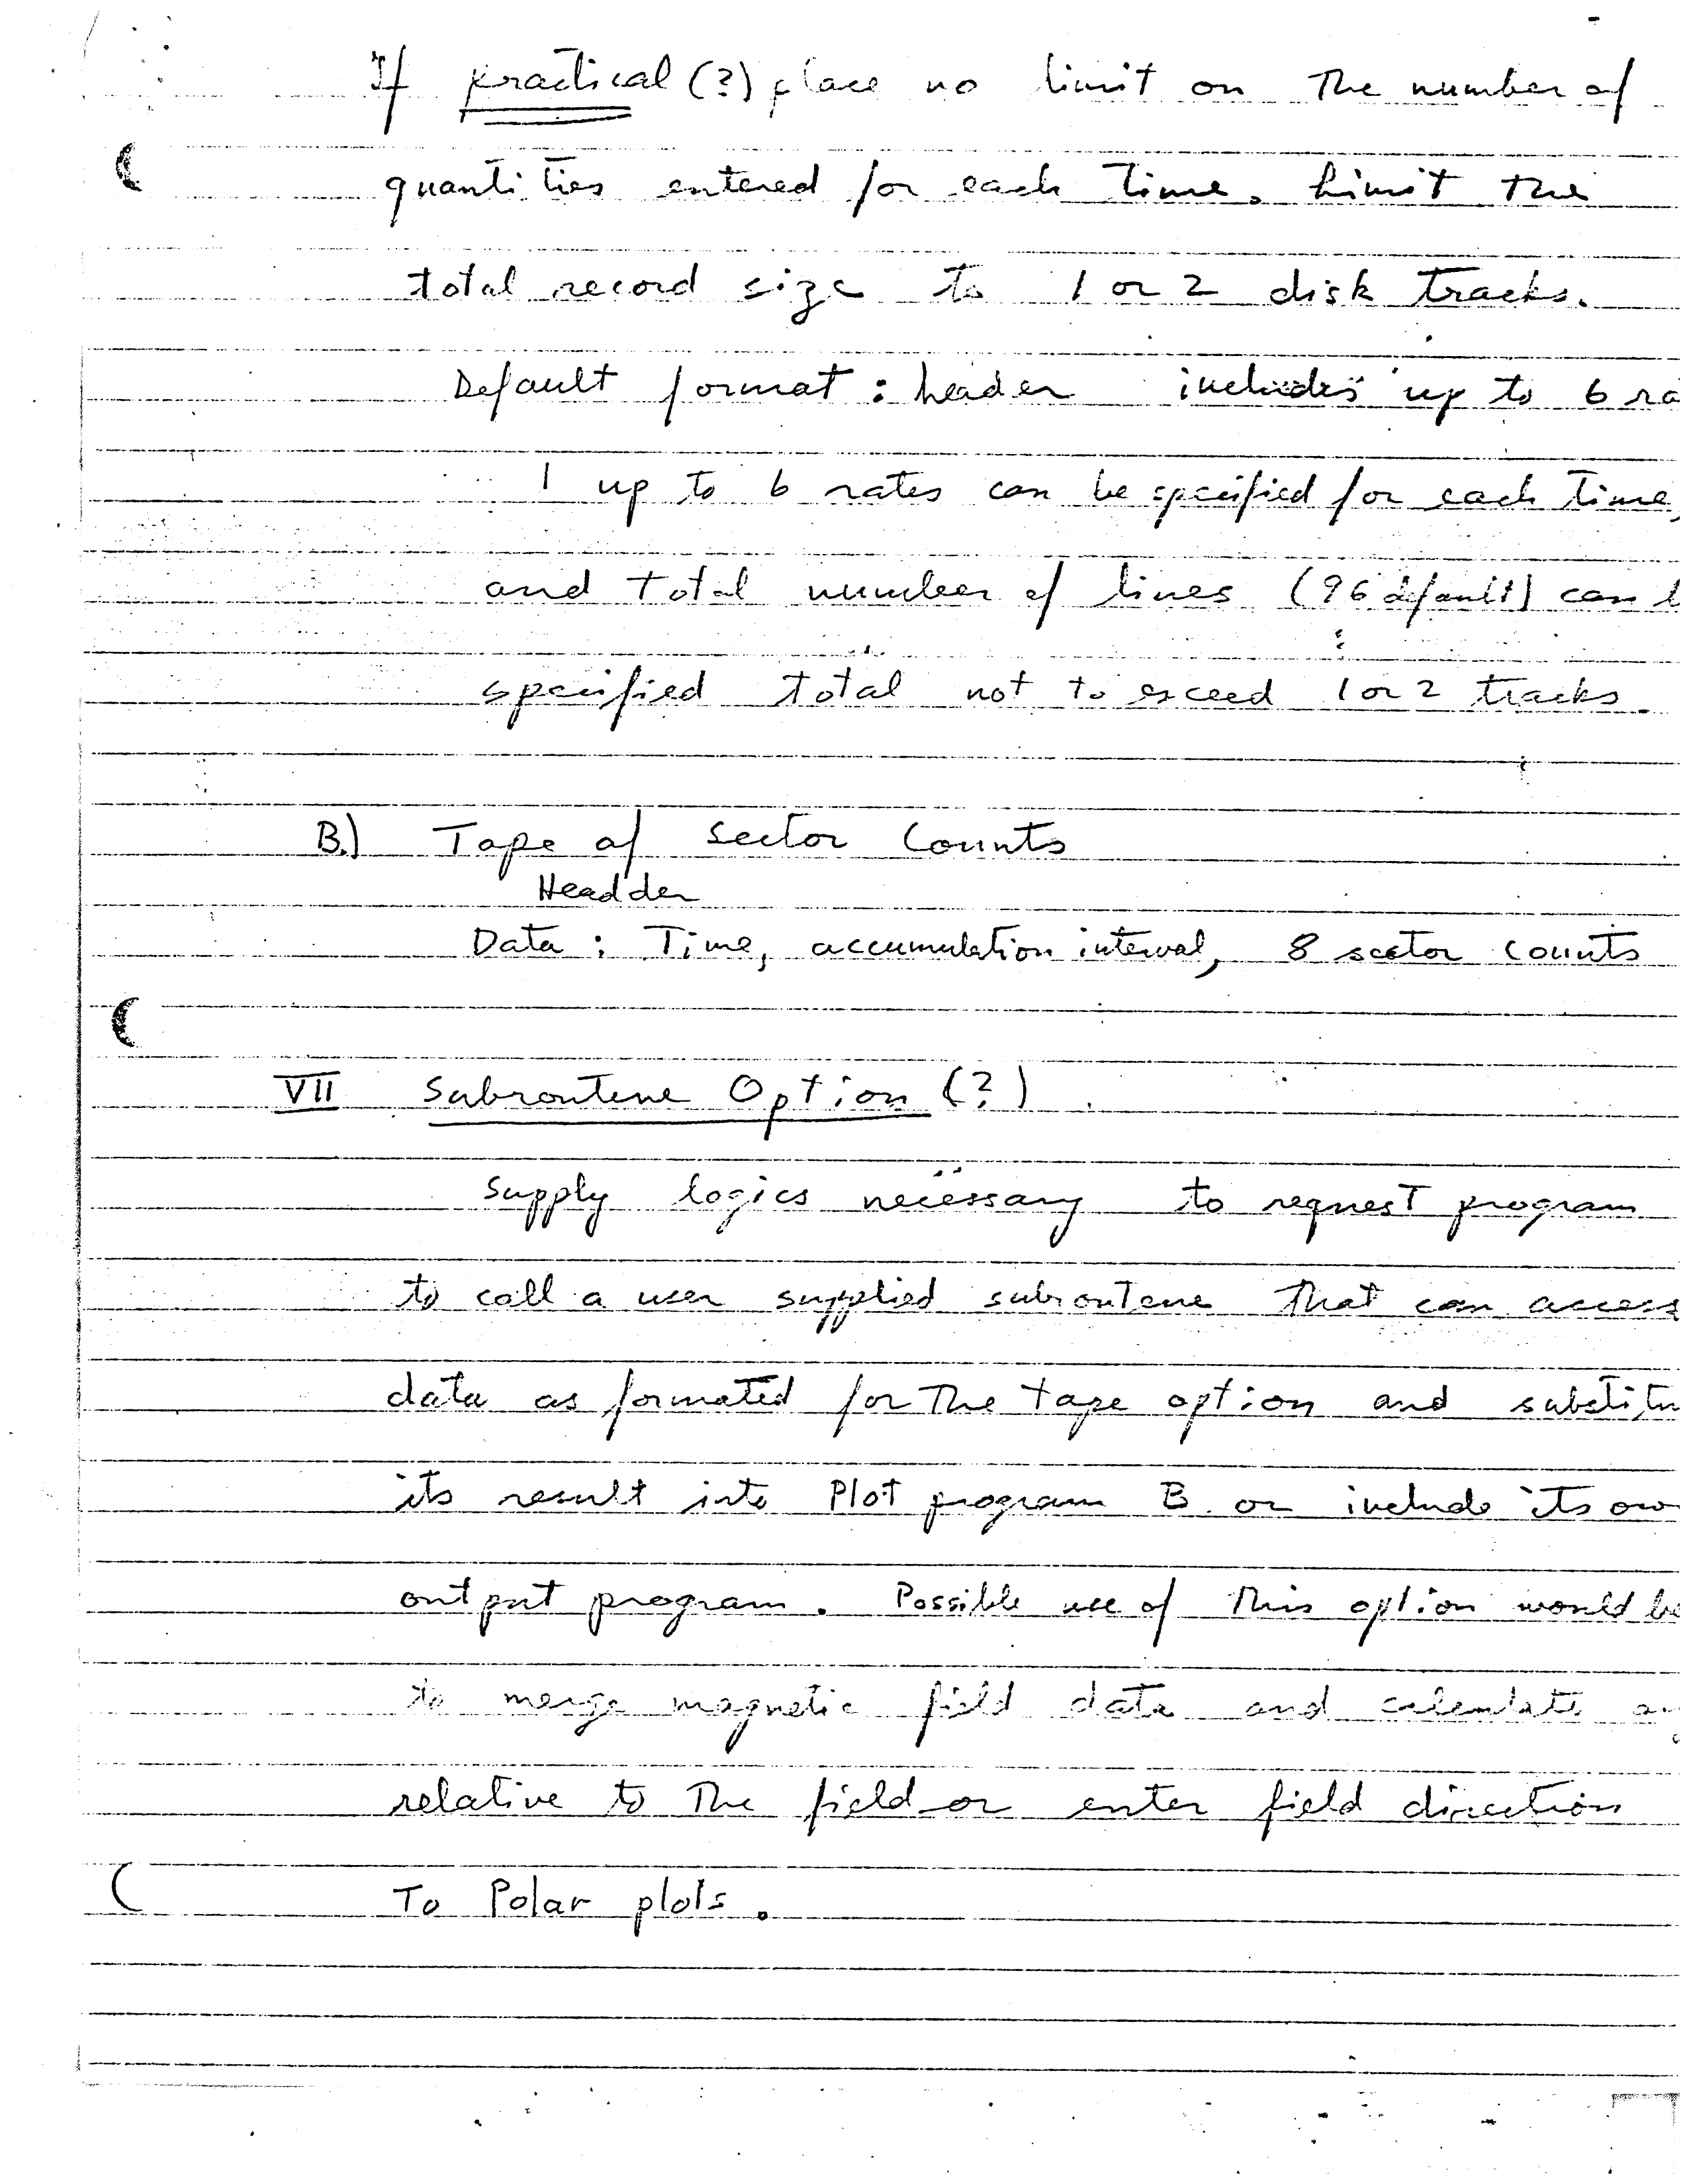 If practical (?) place no limit on The number of
quantities entered for each Time. Limit the
total record size to 1 or 2 disk tracks.
Default format : header includes up to 6 ra
1 up to 6 rates can be specified for each time,
and total number of lines (96 default) can b
specified total not to exceed 1 or 2 tracks.
B.) Tape of Sector Counts
Headder
Data : Time, accumulation interval, 8 sector counts
VII Subroutene Option (?)
Supply logics necessary to request program
to call a user supplied subroutene That can access
data as formated for The tape option and substitu
its result into Plot program B or include its ow
output program. Possible use of This option would be
to merge magnetic field data and calculate an
relative to The field or enter field direction
To Polar plots.